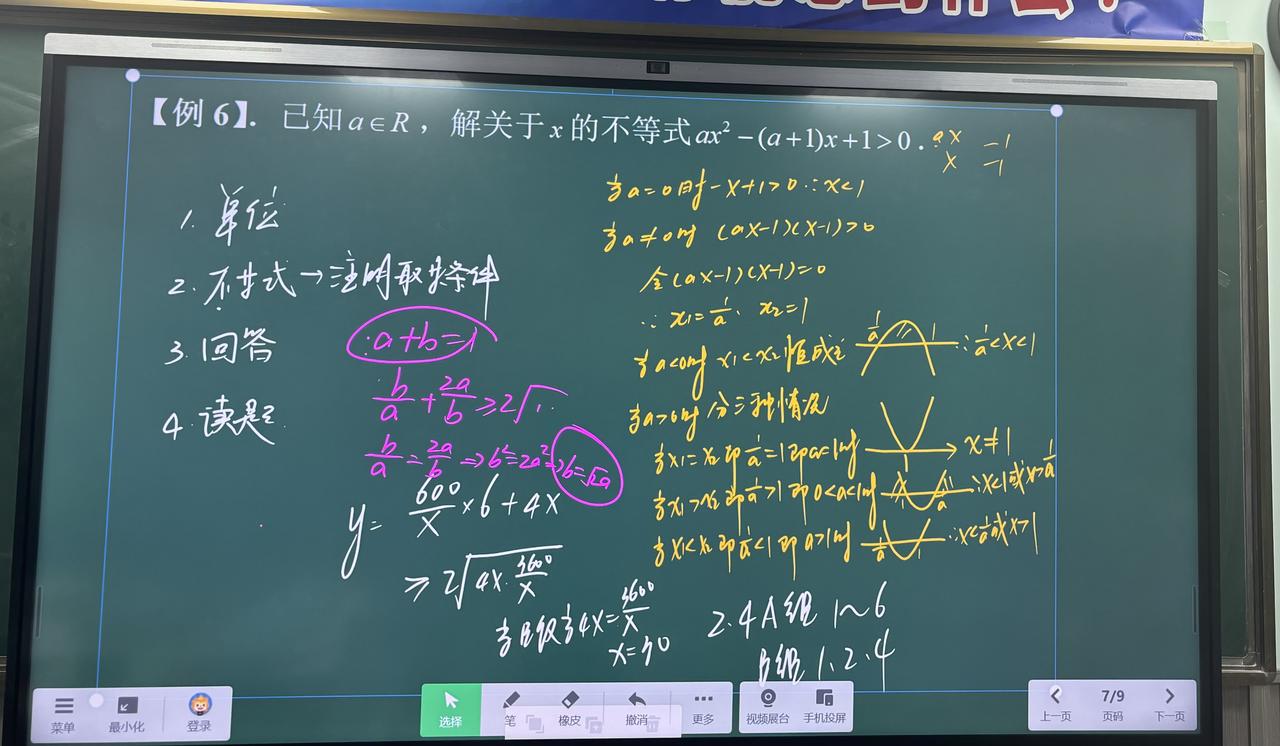 【例 6】. 已知 a∈R ，解关于 x 的不等式 ax² −(a+1)x+1>0 .
ax −1
x −1
1. 单位
2. 不等式→注明取等条件
3. 回答
4. 读题
a+b=1
b/a + 2a/b ≥2√
b/a = 2a/b ⇒b²=2a²⇒b=√2a
y= 600/x ×6+4x
≥2√4x·3600/x
当且仅当4x=3600/x
x=30
当a=0时-x+1>0∴x<1
当a≠0时 (ax-1)(x-1)>0
令(ax-1)(x-1)=0
∴x₁=1/a、x₂=1
当a<0时 x₁<x₂恒成立 1/a 1 ∴1/a<x<1
当a>0时分三种情况
当x₁=x₂即1/a=1即a=1时 x≠1
当x₁>x₂即1/a>1即0<a<1时 ∴x<1或x>1/a
当x₁<x₂即1/a<1即a>1时 1/a 1 ∴x<1/a或x>1
2.4A组 1~6
B组 1、2、4
菜单
最小化
登录
选择
笔
橡皮
撤消
更多
视频展台
手机投屏
上一页
7/9
页码
下一页